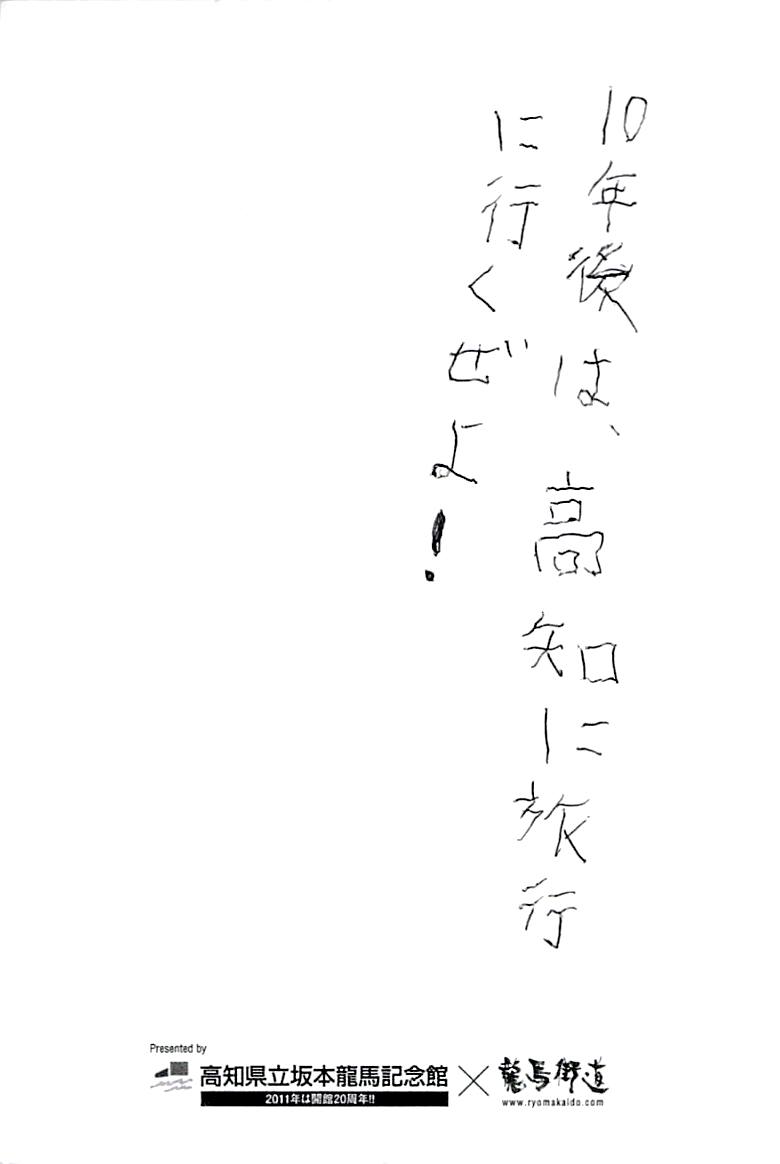 10年後は、高知に旅行
に行くぜよ!
Presented by
高知県立坂本龍馬記念館
2011年は開館20周年!!
×
龍馬街道
www.ryomakaido.com